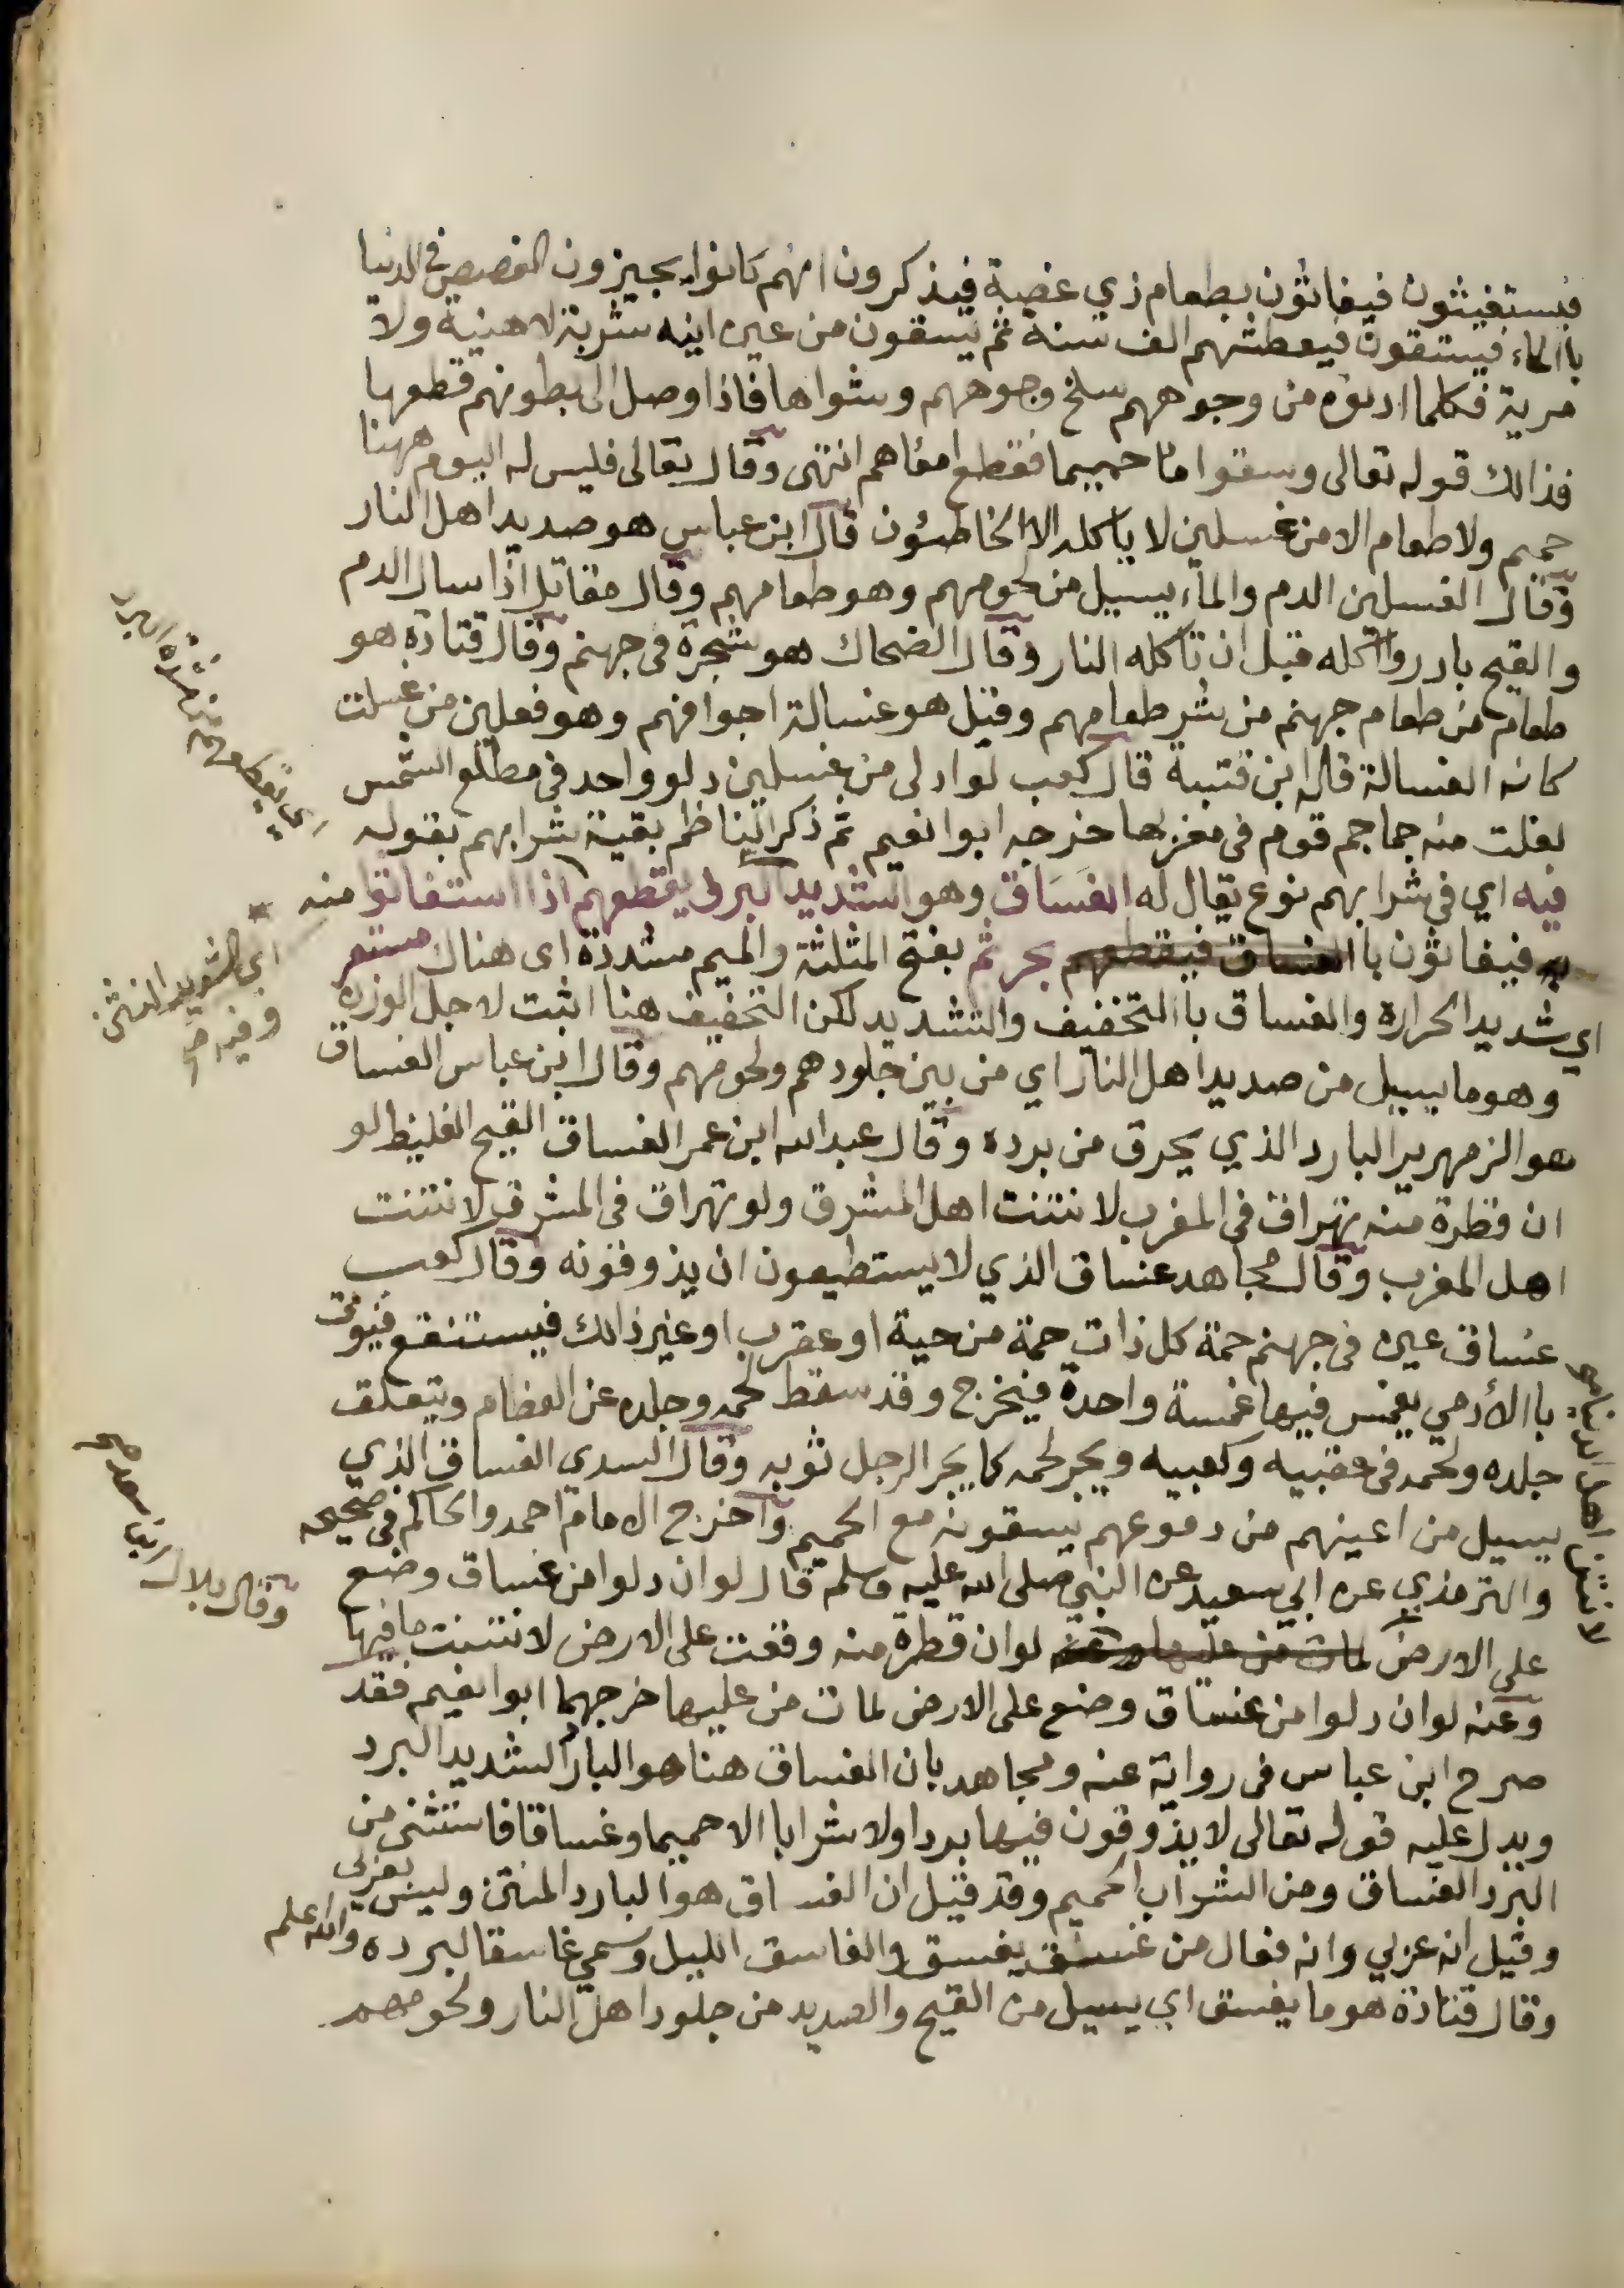 فيستغيثون فيغاثون بطعام ذي غصة فيذكرون انهم كانوا يجيزون الغصص في الدنيا
باالماء فيستقون فيعطشهم الف سنة ثم يسقون من عين انيه شربة لا هنية ولا
مرية فكلما ادنوه من وجوههم سلخ وجوههم وشواها فاذا وصل الى بطونهم قطعها
فذالك قوله تعالى وسقوا ماء حميما فقطع امعاهم انتهى وقال تعالى فليس له اليوم ههنا
حميم ولا طعام الا من غسلين لا ياكله الا الخاطئون قال ابن عباس هو صديد اهل النار
وقال الغسلين الدم والماء يسيل من لحومهم وهو طعامهم وقال مقاتل اذا سال الدم
والقيح بادروا اكله قبل ان تاكله النار وقال الضحاك هو شجرة في جهنم وقال قتادة هو
طعام من طعام جهنم من شر طعامهم وقيل هو غسالة اجوافهم وهو فعلين من غسلت
كانه الغسالة قاله ابن قتيبة قال كعب لو ادلى من غسلين دلو واحد في مطلع الشمس
لغلت منه جماجم قوم في مغربها خرجه ابوا نعيم ثم ذكر الناظم بقية شرابهم بقوله
فيه اي في شرابهم نوع يقال له الغساق وهو الشديد البرد يقطعهم اذا استغاثوا منه
فيغاثون باا الغساق فيقطعهم بحر ثم بفتح المثلثة والميم مشددة اى هناك مستعر
اي شديد الحرارة والغساق باالتخفيف والتشديد لكن التخفيف هنا اثبت لاجل الوزن
وهو ما يسيل من صديد اهل النار اي من بين جلودهم ولحومهم وقال ابن عباس الغساق
هو الزمهرير البارد الذي يحرق من برده وقال عبد الله ابن عمر الغساق القيح الغليظ لو
ان قطرة منه تهراق في المغرب لانتنت اهل المشرق ولو تهراق في المشرق لانتنت
اهل المغرب وقال مجاهد غساق الذي لا يستطيعون ان يذوقونه وقال كعب
غساق عين في جهنم حمة كل ذات حمة من حية او عقرب او غير ذالك فيستنقع فيوتى
باالأدمي يغمس فيها غمسة واحدة فيخرج وقد سقط لحمه وجلده عن العظام ويتعلق
جلده ولحمه في عقبيه وكعبيه ويجر لحمه كما يجر الرجل ثوبه وقال السدي الغساق الذي
يسيل من اعينهم من دموعهم يسقونه مع الحميم واخرج الامام احمد والحاكم في صحيحه
والترمذي عن ابي سعيد عن النبي صلى الله عليه وسلم قال لو ان دلوا من غساق وضع
على الارض لمات من عليها وعنه لو ان قطرة منه وقعت على الارض لانتنت ما فيها
وعنه لو ان دلوا من غساق وضع على الارض لمات من عليها خرجهما ابوا نعيم فقد
صرح ابن عباس في رواية عنه ومجاهد بان الغساق هنا هو البارد الشديد البرد
ويدل عليه قوله تعالى لا يذوقون فيها بردا ولا شرابا الا حميما وغساقا فاستثنى من
البرد الغساق ومن الشراب الحميم وقد قيل ان الغساق هو البارد المنتن وليس بعربي
وقيل انه عربي وانه فعال من غسق يغسق والغاسق الليل وسمي غاسقا لبرده والله اعلم
وقال قتادة هو ما يغسق اي يسيل من القيح والصديد من جلود اهل النار ولحومهم
من شدة البرد
وقال بلال ابن سعد صح